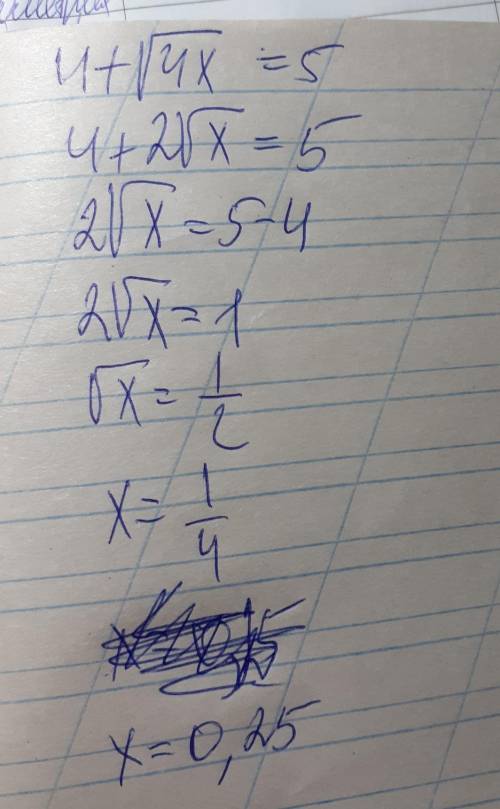 4+√4x = 5
4+2√x = 5
2√x = 5-4
2√x = 1
√x = 1/2
x = 1/4
x = 0,25